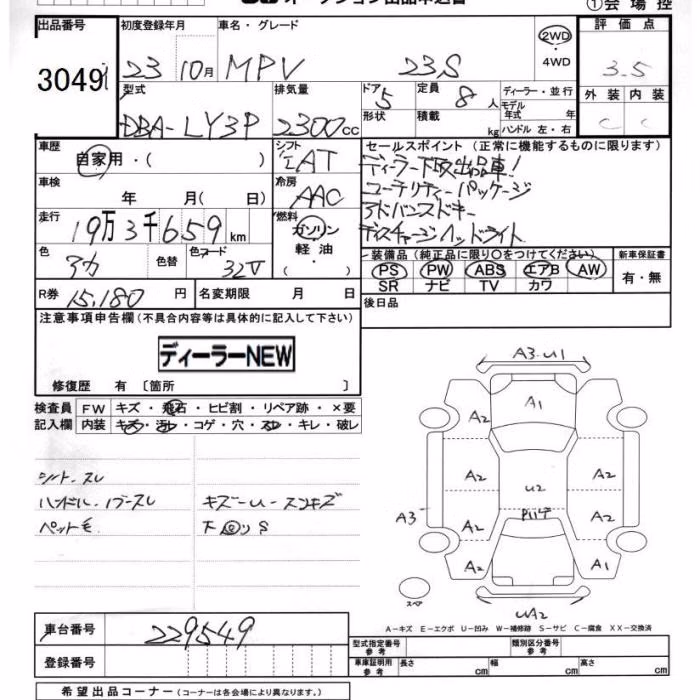 オークション出品申込書
①会場控
出品番号
3049
初度登録年月
23 10月
車名・グレード
MPV 23S
2WD
4WD
評価点
3.5
外装 内装
C C
型式
DBA-LY3P
排気量
2300cc
ドア 5
形状
定員 8 人
積載 kg
ディーラー・並行
モデル年式 年
ハンドル 左・右
車歴
自家用・( )
シフト
AT
セールスポイント (正常に機能するものに限ります)
ディーラー下取出品車!
ユーテリティーパッケージ
アドバンスドキー
ディスチャージヘッドライト
車検
年 月( 日)
冷房
AAC
走行
19万3千659km
燃料
ガソリン
軽油
・
色
アカ
色替
色コード
32V
装備品 (純正品に限り○をつけてください)
PS PW ABS エアB AW
SR ナビ TV カワ
新車保証書
有・無
R券 15,180 円
名変期限 月 日
後日品
注意事項申告欄 (不具合内容等は具体的に記入して下さい)
ディーラーNEW
修復歴 有 〔箇所 〕
検査員
記入欄
FW キズ・飛石・ヒビ割・リペア跡・×要
内装 キズ・汚レ・コゲ・穴・スレ・キレ・破レ
シート・スレ
ハンドル・ノブースレ
ペット毛
キズ-U-スンキズ
A3・U1
A1
A2
A2
A2
U2
A2
A3
A2
A2
A2
A1
UA2
スペア
A-キズ E-エクボ U-凹み W-補修跡 S-サビ C-腐食 XX-交換済
車台番号
229549
登録番号
型式指定番号
参考
類別区分番号
参考
車庫証明用
参考
長さ cm
幅 cm
高さ cm
希望出品コーナー (コーナーは各会場により異なります。)